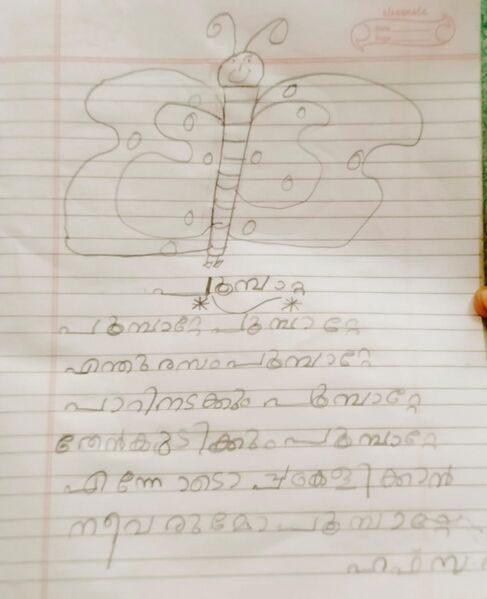 classmate
Date
Page
പൂമ്പാറ്റ
പൂമ്പാറ്റേ പൂമ്പാറ്റേ
എന്തുരസം പൂമ്പാറ്റേ
പാറിനടക്കും പൂമ്പാറ്റേ
തേൻകുടിക്കും പൂമ്പാറ്റേ
എന്നോടൊപ്പം കളിക്കാൻ
നീവരുമോ പൂമ്പാറ്റേ